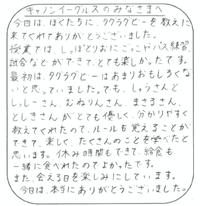 キヤノンイーグルスのみなさまへ
今日は、ぼくたちに、タグラグビーを教えに
来てくれてありがとうございました。
授業では、しっぽとりおにごっこやパス練習、
試合などができて、とても楽しかったです。
最初は、タグラグビーはあまりおもしろくな
いと思っていました。でも、しょうさんと
しゅーさん、むねりんさん、まさるさん、
としきさんがとても優しく、分かりやすく
教えてくれたので、ルールも覚えることが
できて、楽しく、たくさんのことを学べたと
思います。休み時間もできて、給食も
一緒に食べれたのでよかったです。
また、会える日を楽しみにしています。
今日は、本当にありがとうございました。